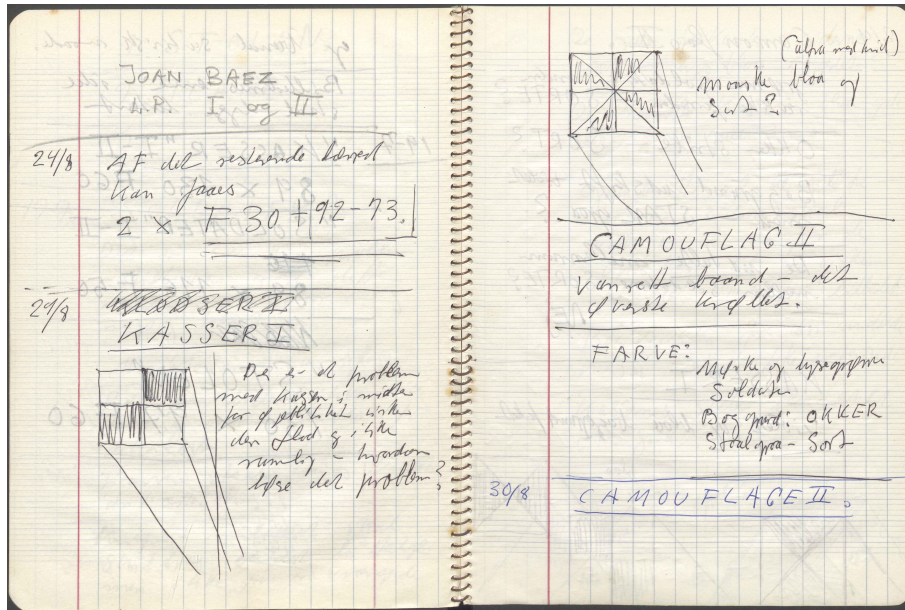 JOAN BAEZ
L.P. I og II
24/8 AF det resterende lærred
kan faaes
2 x F 30 + 92-73.
29/8 KASSER I
KASSER I
Der er et problem
med kassen i midten
for
den flad og ikke
rumlig - hvordan
løse det problem?
(ultra med hvid)
maaske blaa og
Sort?
CAMOUFLAG II
vanrett baand - det
øverste krøllet.
FARVE:
Mørke og lysegrønne
Soldater
Baggrund: OKKER
Staalgraa - Sort
30/8 CAMOUFLAGE II.